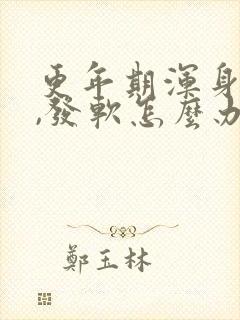 更年期渾身
,發軟怎麼办
鄭玉林